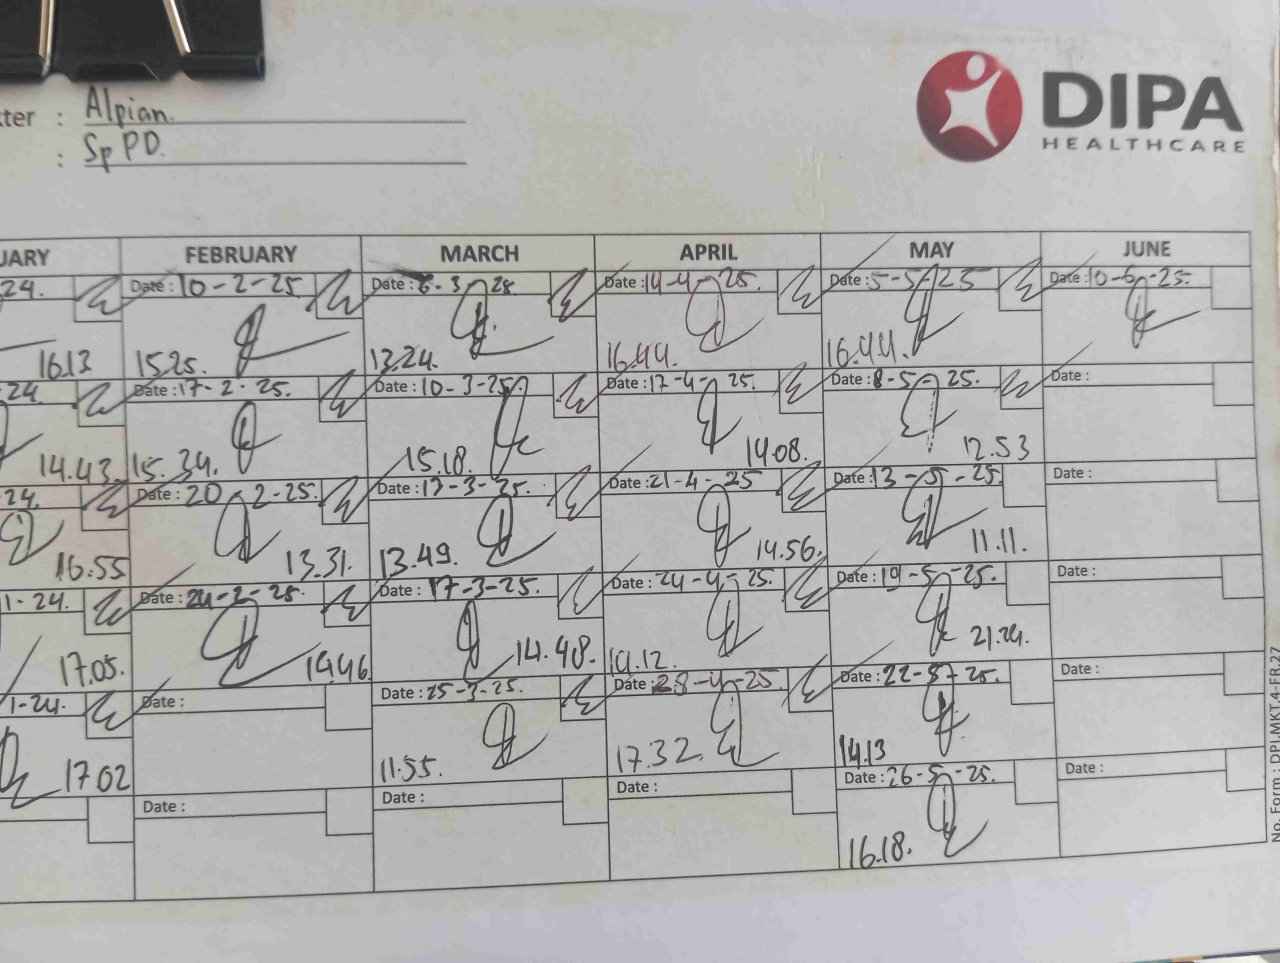 DIPA
HEALTHCARE
: Alpian.
: Sp PD.
FEBRUARY MARCH APRIL MAY JUNE
24. Date : 10-2-25 Date : 6-3-25 Date : 14-4-25. Date : 5-5-25 Date : 10-6-25.
16.13 15.25. 13.24. 16.44. 16.44.
24. Date : 17-2-25. Date : 10-3-25. Date : 17-4-25. Date : 8-5-25. Date :
14.43. 15.34. 15.18. 14.08. 12.53
24. Date : 20-2-25. Date : 13-3-25. Date : 21-4-25 Date : 13-5-25. Date :
16.55 13.31. 13.49. 14.56. 11.11.
1-24. Date : 24-2-25. Date : 17-3-25. Date : 24-4-25. Date : 19-5-25. Date :
17.05. 14.46 14.48. 14.12. 21.24.
1-24. Date : Date : 25-3-25. Date : 28-4-25. Date : 22-5-25. Date :
17.02 11.55. 17.32. 14.13
Date : Date : Date : Date : 26-5-25. Date :
16.18.
No. Form : DPI.MKT.4-FR.27